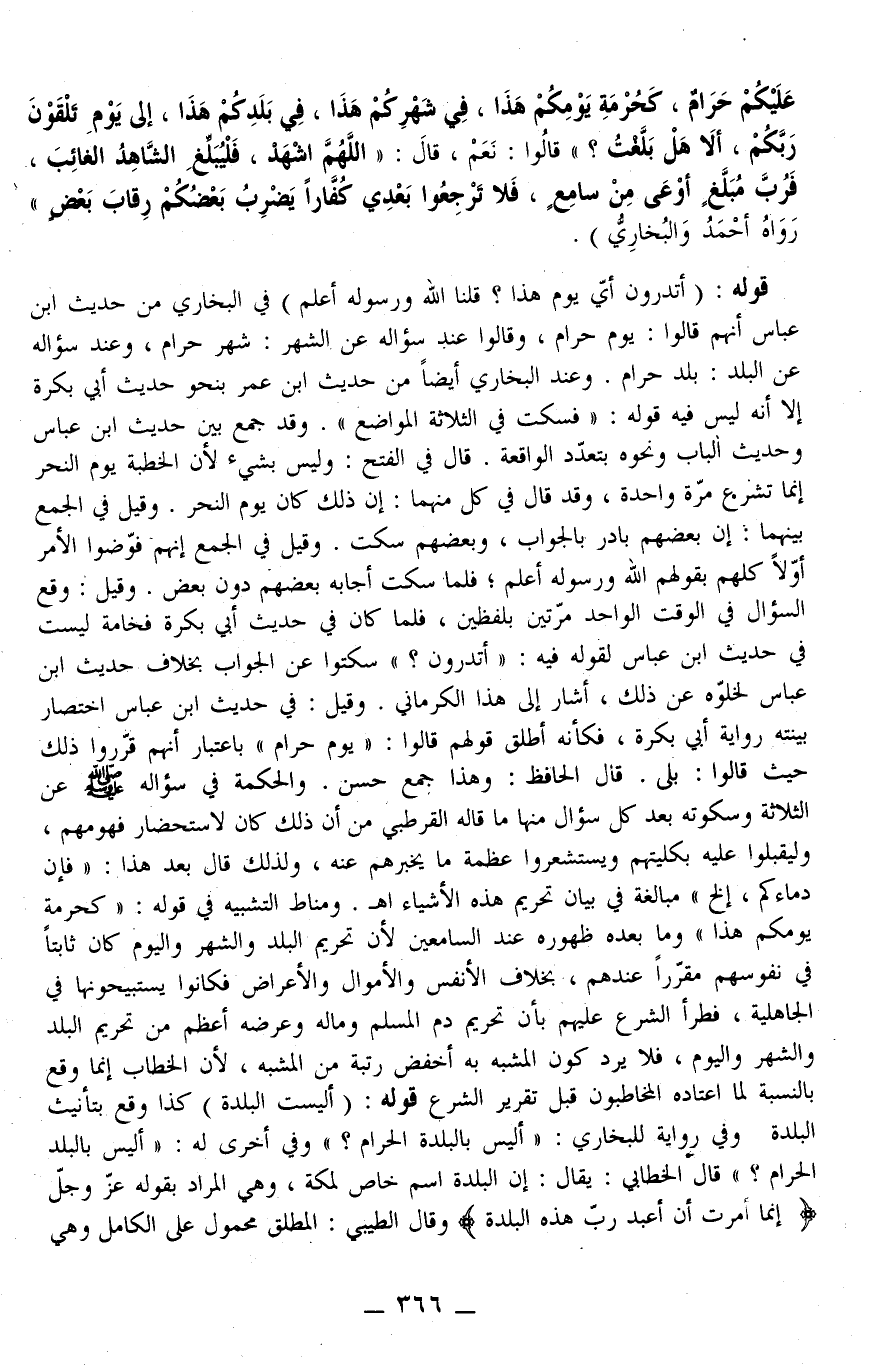 عَلَيْكُمْ حَرَامٌ ، كَحُرْمَةِ يَوْمِكُمْ هَذَا ، فِي شَهْرِكُمْ هَذَا ، فِي بَلَدِكُمْ هَذَا ، إلى يَوْمِ تَلْقَوْنَ
رَبَّكُمْ ، أَلَا هَلْ بَلَّغْتُ ؟ » قالُوا : نَعَمْ ، قالَ : « اللَّهُمَّ اشْهَدْ ، فَلْيُبَلِّغِ الشَّاهِدُ الغائِبَ ،
فَرُبَّ مُبَلَّغٍ أوْعَى مِنْ سامِعٍ ، فَلا تَرْجِعُوا بَعْدِي كُفَّاراً يَضْرِبُ بَعْضُكُمْ رِقابَ بَعْضٍ »
رَوَاهُ أَحْمَدُ وَالبُخارِيُّ ) .
قوله : ( أتدرون أيّ يوم هذا ؟ قلنا الله ورسوله أعلم ) في البخاري من حديث ابن
عباس أنهم قالوا : يوم حرام ، وقالوا عند سؤاله عن الشهر : شهر حرام ، وعند سؤاله
عن البلد : بلد حرام . وعند البخاري أيضاً من حديث ابن عمر بنحو حديث أبي بكرة
إلا أنه ليس فيه قوله : « فسكت في الثلاثة المواضع » . وقد جمع بين حديث ابن عباس
وحديث الباب ونحوه بتعدّد الواقعة . قال في الفتح : وليس بشيء لأن الخطبة يوم النحر
إنما تشرع مرّة واحدة ، وقد قال في كل منهما : إن ذلك كان يوم النحر . وقيل في الجمع
بينهما : إن بعضهم بادر بالجواب ، وبعضهم سكت . وقيل في الجمع إنهم فوّضوا الأمر
أوّلاً كلهم بقولهم الله ورسوله أعلم ؛ فلما سكت أجابه بعضهم دون بعض . وقيل : وقع
السؤال في الوقت الواحد مرّتين بلفظين ، فلما كان في حديث أبي بكرة فخامة ليست
في حديث ابن عباس لقوله فيه : « أتدرون ؟ » سكتوا عن الجواب بخلاف حديث ابن
عباس لخلوّه عن ذلك ، أشار إلى هذا الكرماني . وقيل : في حديث ابن عباس اختصار
بينته رواية أبي بكرة ، فكأنه أطلق قولهم قالوا : « يوم حرام » باعتبار أنهم قرّروا ذلك
حيث قالوا : بلى . قال الحافظ : وهذا جمع حسن . والحكمة في سؤاله ﷺ عن
الثلاثة وسكوته بعد كل سؤال منها ما قاله القرطبي من أن ذلك كان لاستحضار فهومهم ،
وليقبلوا عليه بكليتهم ويستشعروا عظمة ما يخبرهم عنه ، ولذلك قال بعد هذا : « فإن
دماءكم ، إلخ » مبالغة في بيان تحريم هذه الأشياء اهـ . ومناط التشبيه في قوله : « كحرمة
يومكم هذا » وما بعده ظهوره عند السامعين لأن تحريم البلد والشهر واليوم كان ثابتاً
في نفوسهم مقرّراً عندهم ، بخلاف الأنفس والأموال والأعراض فكانوا يستبيحونها في
الجاهلية ، فطرأ الشرع عليهم بأن تحريم دم المسلم وماله وعرضه أعظم من تحريم البلد
والشهر واليوم ، فلا يرد كون المشبه به أخفض رتبة من المشبه ، لأن الخطاب إنما وقع
بالنسبة لما اعتاده المخاطبون قبل تقرير الشرع قوله : ( أليست البلدة ) كذا وقع بتأنيث
البلدة وفي رواية للبخاري : « أليس بالبلدة الحرام ؟ » وفي أخرى له : « أليس بالبلد
الحرام ؟ » قال الخطابي : يقال : إن البلدة اسم خاص لمكة ، وهي المراد بقوله عزّ وجلّ
﴿ إنما أمرت أن أعبد ربّ هذه البلدة ﴾ وقال الطيبي : المطلق محمول على الكامل وهي
ــ ٣٦٦ ــ